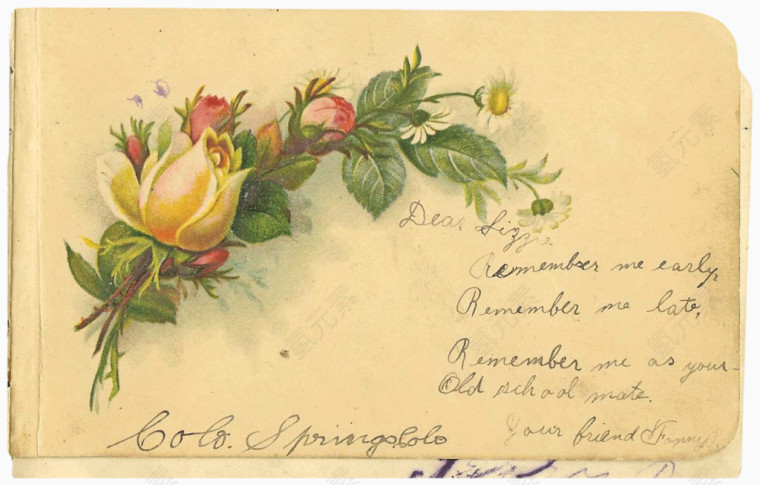 Dear Lizzie.
Remember me early,
Remember me late,
Remember me as your-
Old school mate.
Your friend Fanny
Colo. Springs Colo